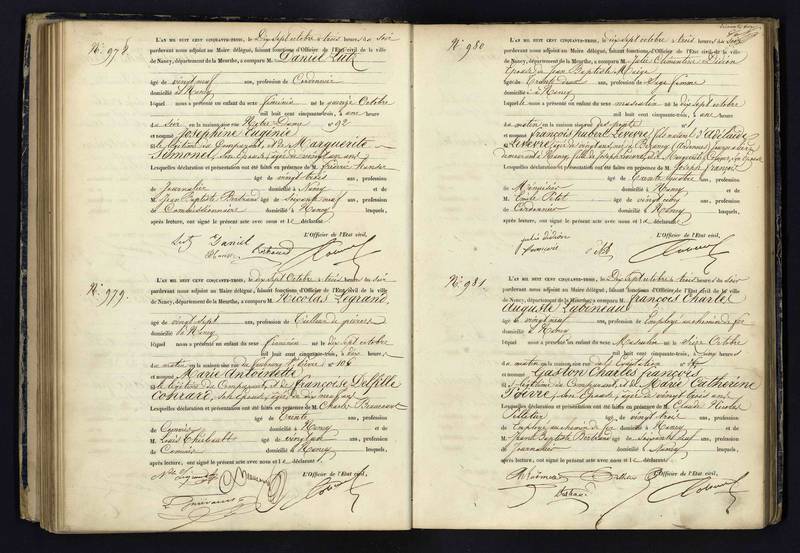 N.° 978
L'AN MIL HUIT CENT CINQUANTE-TROIS, le Dix sept octobre à trois heures du Soir
pardevant nous adjoint au Maire délégué, faisant fonctions d'Officier de l'Etat civil de la ville
de Nancy, département de la Meurthe, a comparu M. Daniel Lutz
âgé de vingt neuf ans, profession de Cordonnier
domicilié à Nancy
lequel nous a présenté un enfant du sexe féminin né le quinze Octobre
mil huit cent cinquante-trois, à une heure
du Soir en la maison sise rue Notre Dame n° 92
et nommé Joséphine Eugénie
fille légitime du Comparant, et de Marguerite
Simonel, son épouse, âgée de vingt un ans
Lesquelles déclaration et présentation ont été faites en présence de M. Frédéric
âgé de vingt trois ans, profession
de Journalier domicilié à Nancy et de
M. Jean Baptiste Bertrand âgé de Soixante neuf ans, profession
de Commissionnaire domicilié à Nancy lesquels,
après lecture, ont signé le présent acte avec nous et le déclarant
L'Officier de l'Etat civil,
Lutz Daniel
Bertrand
N.° 979.
L'AN MIL HUIT CENT CINQUANTE-TROIS, le dix sept Octobre à trois heures du soir
pardevant nous adjoint au Maire délégué, faisant fonctions d'Officier de l'Etat civil de la ville
de Nancy, département de la Meurthe, a comparu M. Nicolas Legrand
âgé de vingt sept ans, profession de Tailleur de pierres
domicilié à Nancy
lequel nous a présenté un enfant du sexe féminin né le dix sept octobre
mil huit cent cinquante-trois, à dix heures
du matin en la maison sise rue du faubourg St Pierre n° 106
et nommé Marie Antoinette
fille légitime du Comparant, et de Françoise Delfille
Conrard, son épouse, âgée de ans
Lesquelles déclaration et présentation ont été faites en présence de M. Charles
âgé de Trente ans, profession
de Commis domicilié à Nancy et de
M. Louis Thiebault âgé de vingt un ans, profession
de Commis domicilié à Nancy lesquels,
après lecture, ont signé le présent acte avec nous et le déclarant
L'Officier de l'Etat civil,
N.° 980
L'AN MIL HUIT CENT CINQUANTE-TROIS, le dix sept octobre à trois heures du Soir
pardevant nous adjoint au Maire délégué, faisant fonctions d'Officier de l'Etat civil de la ville
de Nancy, département de la Meurthe, a comparu M. Julie Clémentine Didion
Epouse de Jean Baptiste
âgée de ans, profession de Sage femme
domiciliée à Nancy
laquelle nous a présenté un enfant du sexe masculin né le dix sept octobre
mil huit cent cinquante-trois, à une heure
du matin en la maison sise rue
et nommé François hubert Lievere, fils naturel d'Adélaïde
Lievere, âgée de vingt un ans, née à (Ardennes)
demeurant à Nancy, fille de Joseph
Lesquelles déclaration et présentation ont été faites en présence de M. Joseph François
âgé de Trente quatre ans, profession
de Menuisier domicilié à Nancy et de
M. Emile Petit âgé de vingt cinq ans, profession
de Cordonnier domicilié à Nancy lesquels,
après lecture, ont signé le présent acte avec nous et la déclarante
L'Officier de l'Etat civil,
julie didion
françois
N.° 981
L'AN MIL HUIT CENT CINQUANTE-TROIS, le Dix sept octobre à trois heures du Soir
pardevant nous adjoint au Maire délégué, faisant fonctions d'Officier de l'Etat civil de la ville
de Nancy, département de la Meurthe, a comparu M. François Charles
Auguste
âgé de vingt neuf ans, profession de Employé au chemin de fer
domicilié à Nancy
lequel nous a présenté un enfant du sexe Masculin né le Seize Octobre
mil huit cent cinquante-trois, à Cinq heures
du matin en la maison sise rue de la
et nommé Gaston Charles François
fils légitime du Comparant, et de Marie Catherine
Poirre, son épouse, âgée de vingt trois ans
Lesquelles déclaration et présentation ont été faites en présence de M. Claude Nicolas
Pelletier âgé de vingt trois ans, profession
de Employé au chemin de fer domicilié à Nancy et de
M. Jean Baptiste Bertrand âgé de Soixante neuf ans, profession
de Journalier domicilié à Nancy lesquels,
après lecture, ont signé le présent acte avec nous et le déclarant
L'Officier de l'Etat civil,